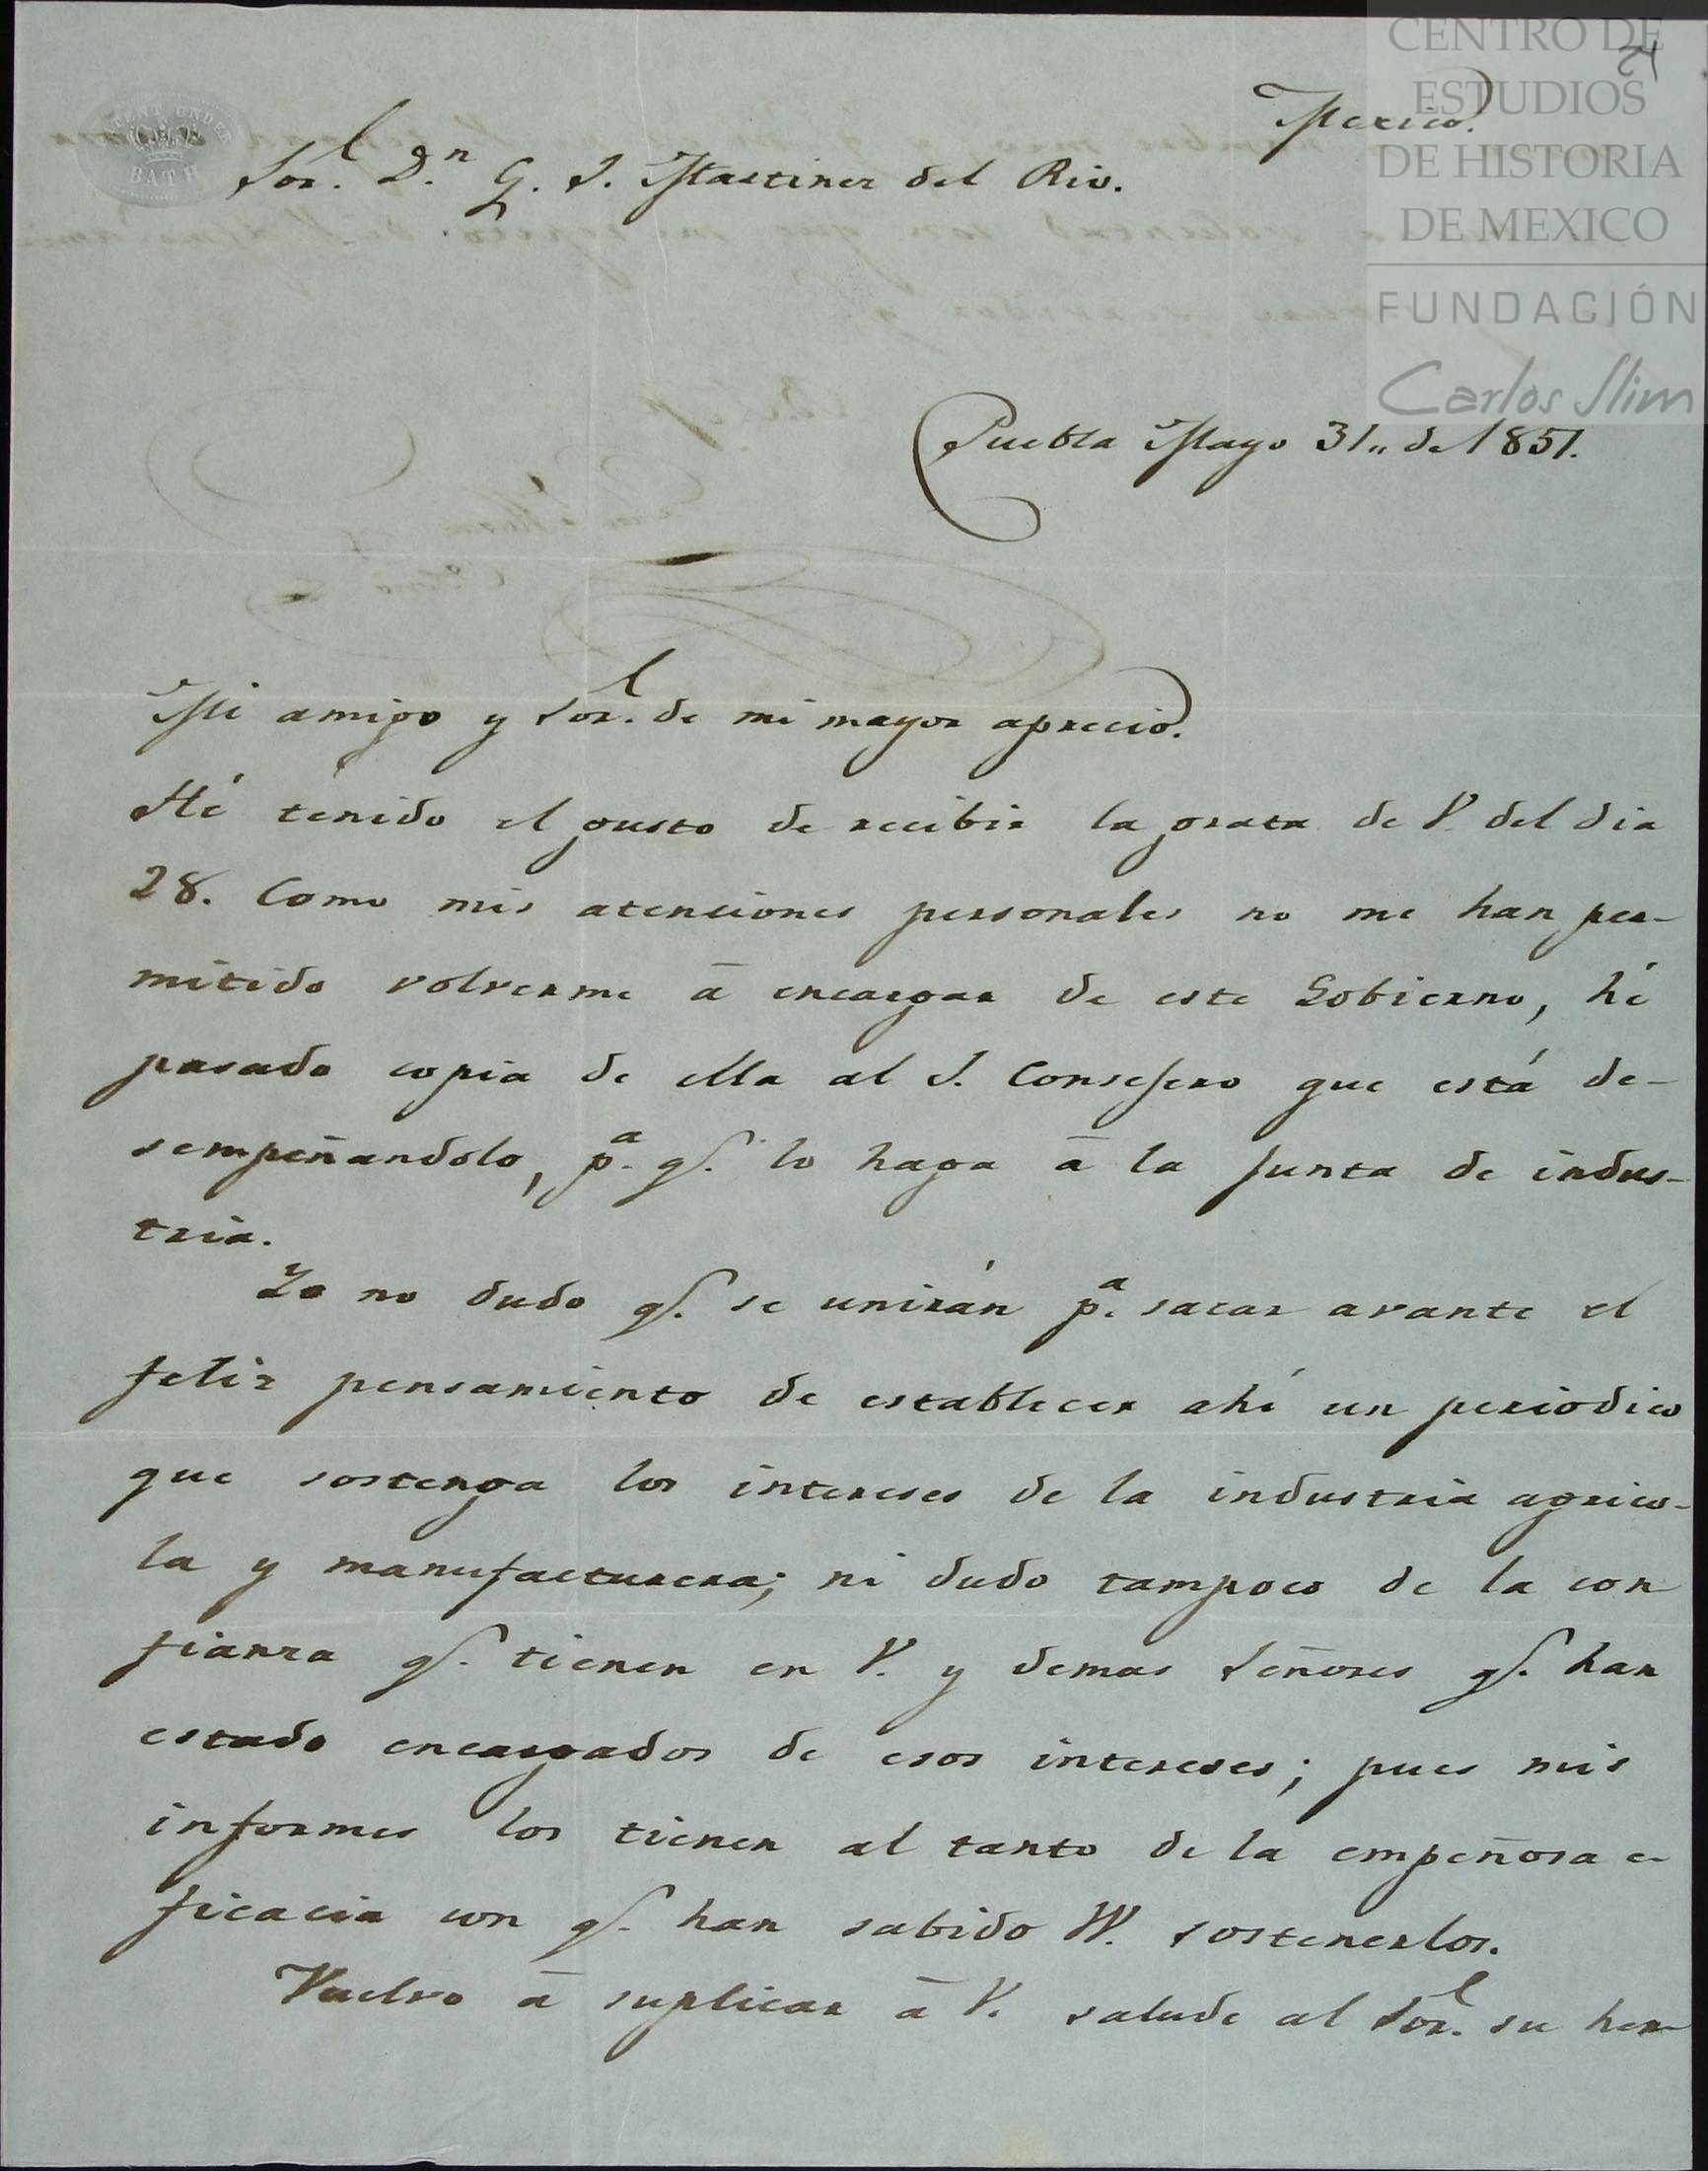 CENTRO DE
ESTUDIOS
DE HISTORIA
DE MEXICO
FUNDACIÓN
Carlos Slim
24
PATENT UNDER
BATH
Mexico.
Sor. D.n G. S. Martinez del Rio.
Puebla Mayo 31,, de 1851.
Mi amigo y Sor. de mi mayor aprecio.
Hé tenido el gusto de recibir la grata de V. del dia
28. Como mis atenciones personales no me han per-
mitido volverme á encargar de este Gobierno, hé
pasado copia de ella al S. Consejero que está de-
sempeñandolo, p.a q.e lo haga á la junta de indus-
tria.
Yo no dudo q.e se unirán p.a sacar avante el
feliz pensamiento de establecer ahí un periodico
que sostenga los intereses de la industria agrico-
la y manufacturera; ni dudo tampoco de la con
fianza q.e tienen en V. y demas Señores q.e han
estado encargados de esos intereses; pues mis
informes los tienen al tanto de la empeñosa e-
ficacia con q.e han sabido VV. sostenerlos.
Vuelvo á suplicar á V. salude al Sor. su her-